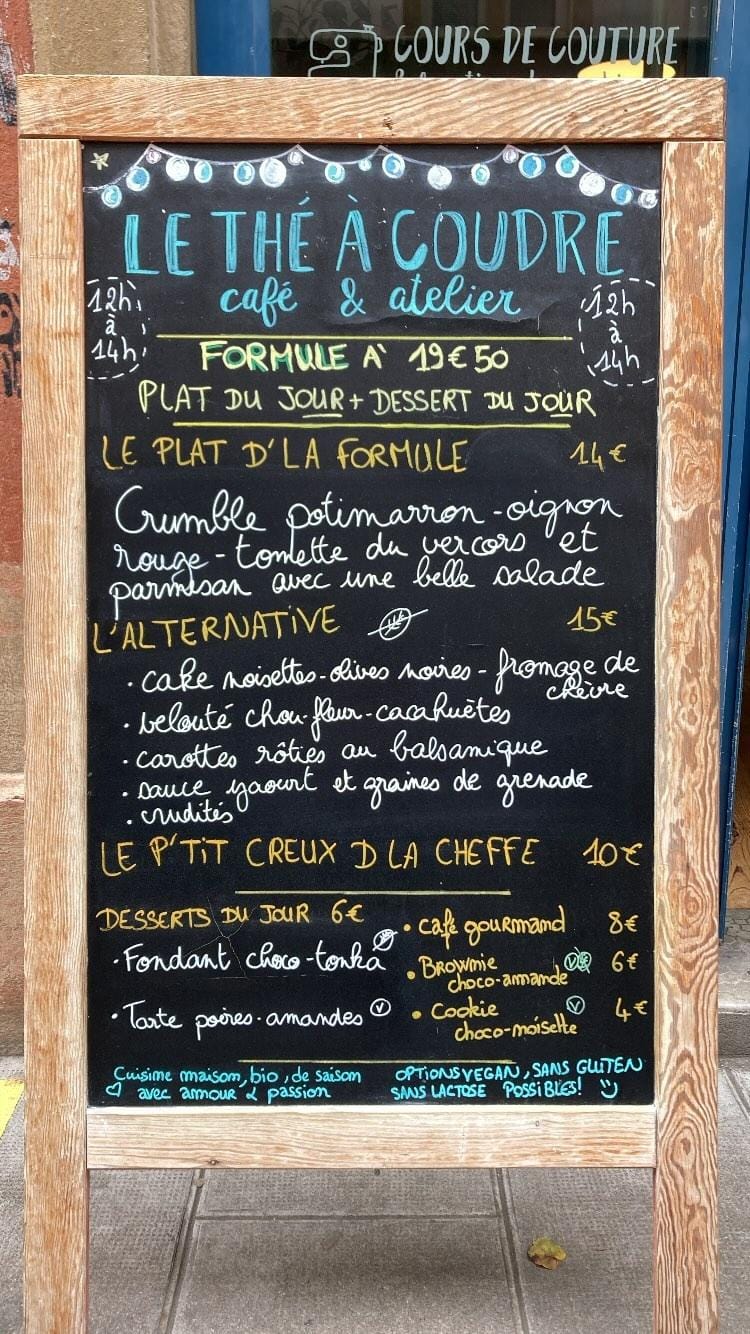 COURS DE COUTURE
LE THÉ À COUDRE
café & atelier
12h
à
14h
12h
à
14h
FORMULE A' 19€50
PLAT DU JOUR + DESSERT DU JOUR
LE PLAT D'LA FORMULE 14€
Crumble potimarron - oignon
rouge - tomette du vercors et
parmesan avec une belle salade
L'ALTERNATIVE 15€
· cake noisettes - olives noires - fromage de
chèvre
· velouté chou-fleur - cacahuètes
· carottes rôties au balsamique
· sauce yaourt et graines de grenade
· crudités
LE P'TIT CREUX D LA CHEFFE 10€
DESSERTS DU JOUR 6€
· Fondant choco-tonka
· Tarte poires-amandes V
• café gourmand 8€
• BROWNIE V 6€
choco-amande
• Cookie V 4€
choco-noisette
Cuisine maison, bio, de saison
avec amour & passion
OPTIONS VEGAN, SANS GLUTEN
SANS LACTOSE POSSIBLES!